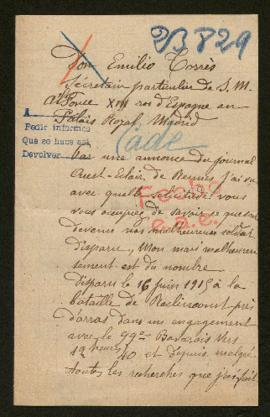 23829
Don Emilio Torrès
Sécretaire particulier de S. M.
Alfonce XIII roi d'Espagne au
Palais Royal Madrid
A
Pedir informes
Que se hace así
Devolver
Par une annonce du journal
Ouest-Eclair de Rennes j'ai su
avec quelle
vous occupez de savoir ce que sont
devenu nos malheureux soldat
disparu, Mon mari malheureu-
sement est du nombre
disparu le 16 juin 1915 à la
Bataille de Roclincourt près
d'arras dans un engagement
avec le 99e Bavarois vers
12 heures 40 et depuis malgré
toutes les recherches que j'ai fait